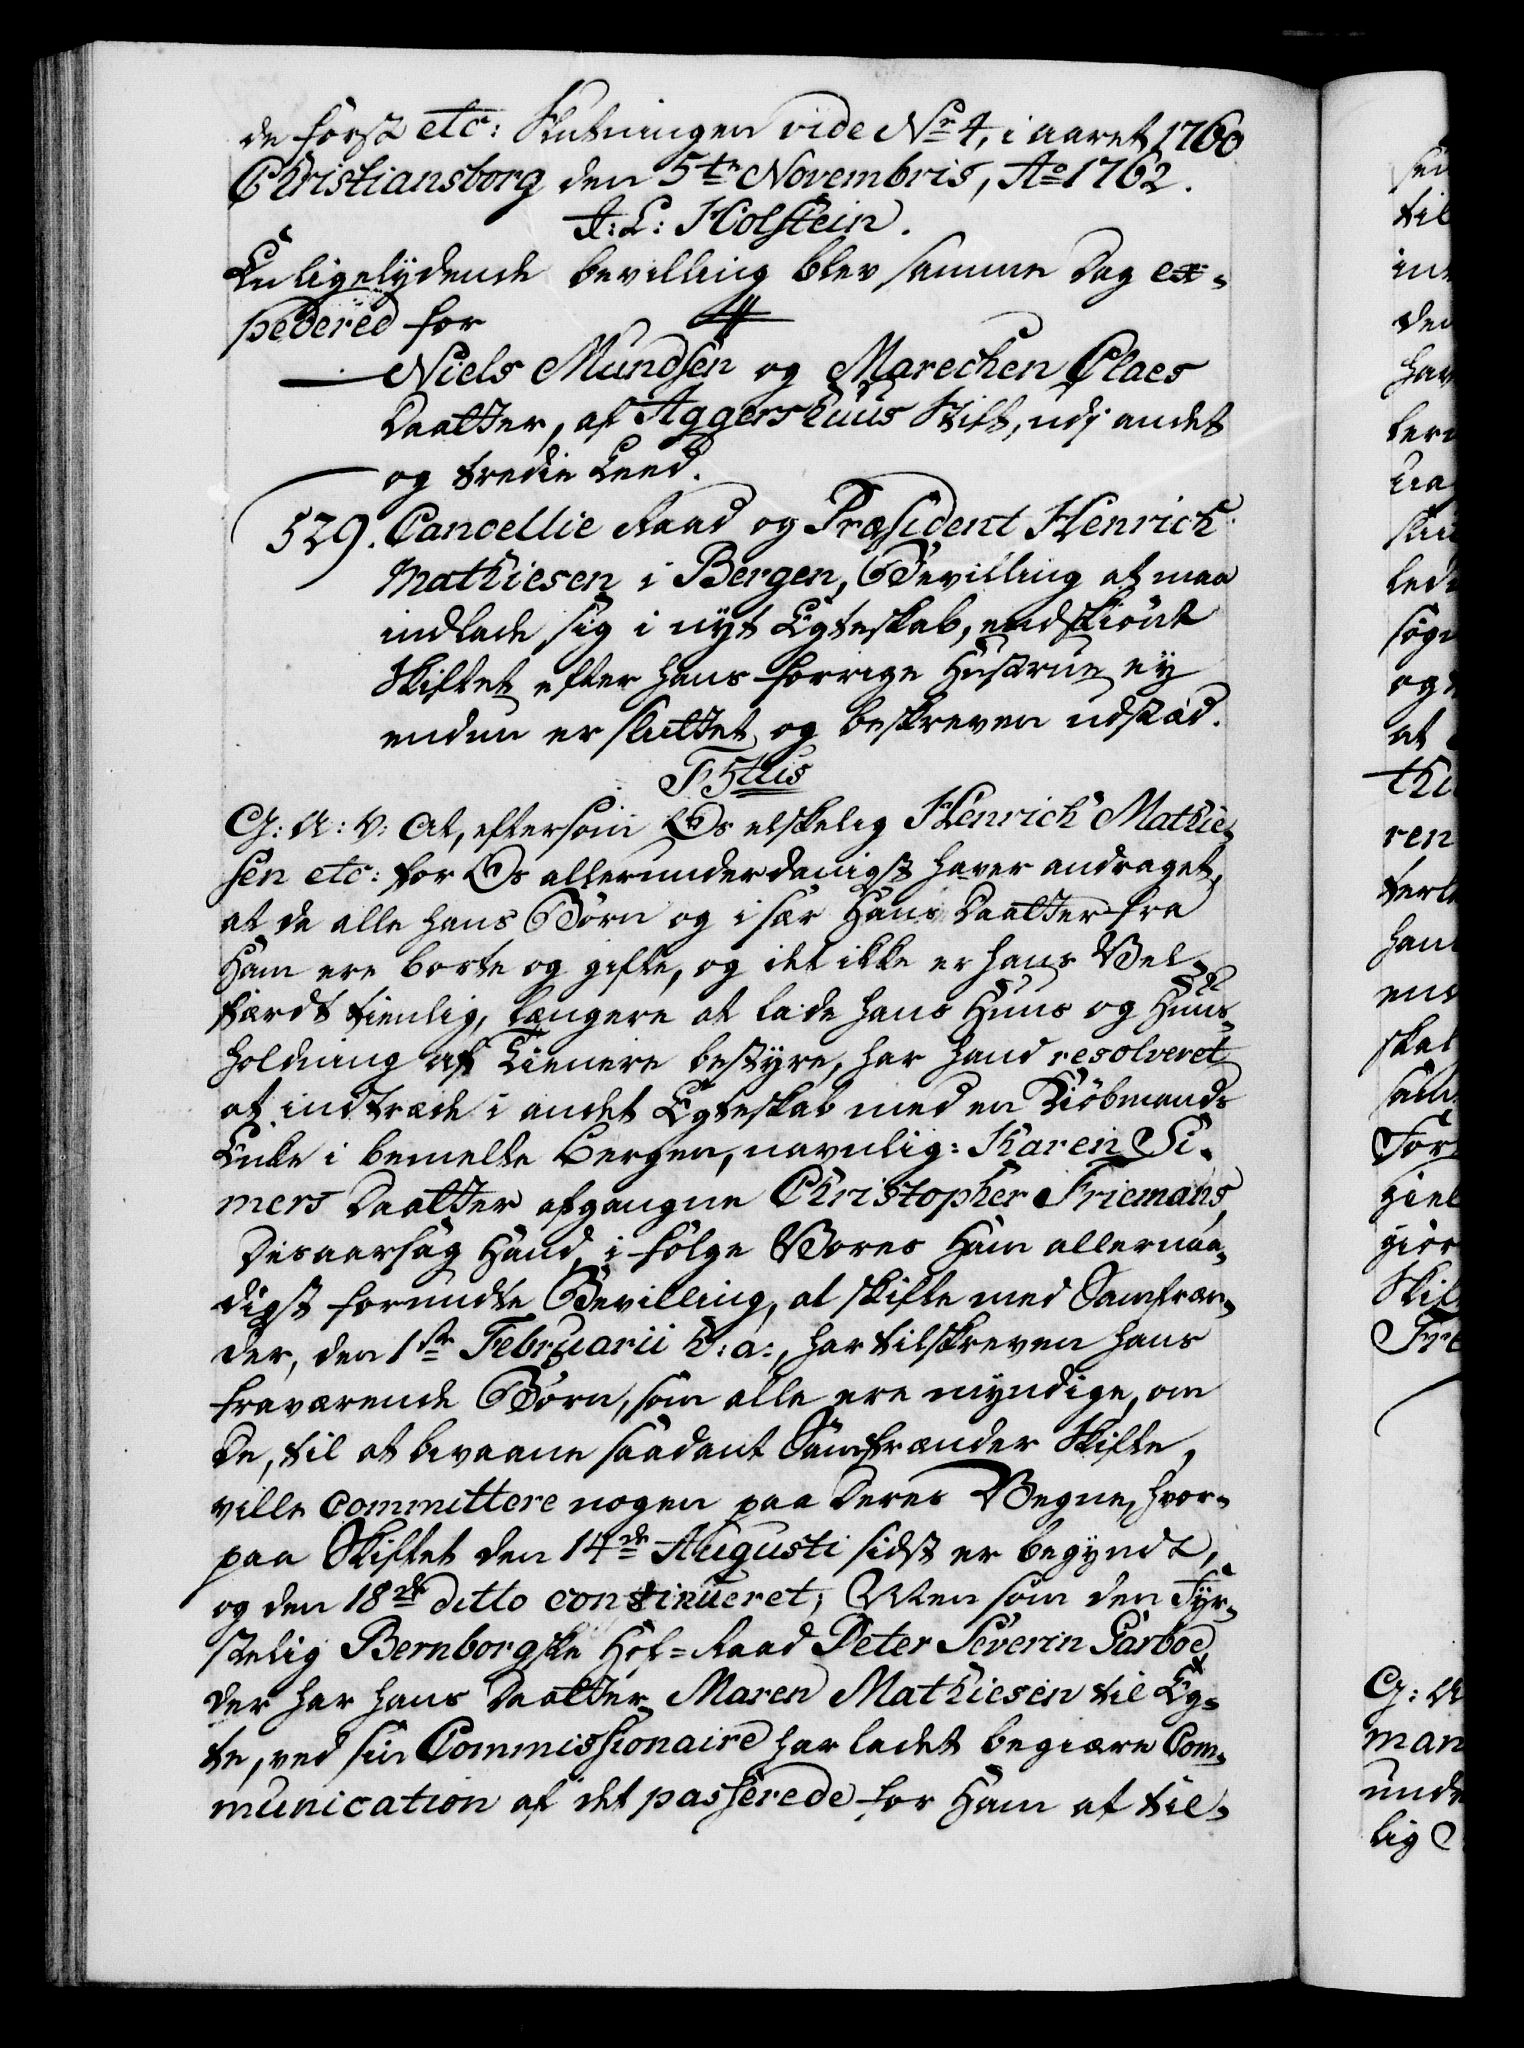 de først etc: Slutningen vide No 4, i aaret 1760
Christiansborg den 5te Novembris, Ao 1762.
J: L: Holstein.
En ligelydende bevilling blev samme Dag ex-
pedered for
Niels Mundsen og Marechen Claes
Daatter, af Aggershuus Stift, udj andet
og tredie Leed.
529. Cancellie Raad og Præsident Henrich
Mathiesen i Bergen, Bevilling at maa
indlade sig i nyt Egteskab, endskiönt
Skiftet efter hans forrige Hustrue ey
endnu er sluttet og beskreven udstæd.
F 5tus
G: A: V: At, eftersom Os elskelig Henrich Mathie-
sen etc: for Os allerunderdanigst haver andraget,
at da alle hans Børn og i sær Hans Daatter fra
Ham ere borte og gifte, og det ikke er hans Vel-
færdt tienlig, længere at lade hans Huus og Huus-
holdning af Tienere bestyre, har hand resolveret
at indtræde i andet Egteskab med en Kiöbmands
Enke i bemelte Bergen, navnlig: Karen Si-
mers Daatter afgangne Christopher Friemans,
Desaarsag Hand, i følge Vores Ham allernaa-
digst forundte Bevilling, at skifte med Samfræn-
der, den 1ste Februarii h: a:, har tilskreven hans
fraværende Børn, som alle ere myndige, om
De, til at bevaane saadant Samfrænder Skifte,
ville committere nogen paa Deres Vegne, hvor-
paa Skiftet den 14de Augusti sidst er begyndt,
og den 18de ditto continueret; Men som den Fyr-
stelig Bernborgske Hof-Raad Peter Severin Garboe,
der har hans Daatter Maren Mathiesen til Eg-
te, ved sin Commissionaire har ladet begiære Com-
munication af det passerede for Ham at til-